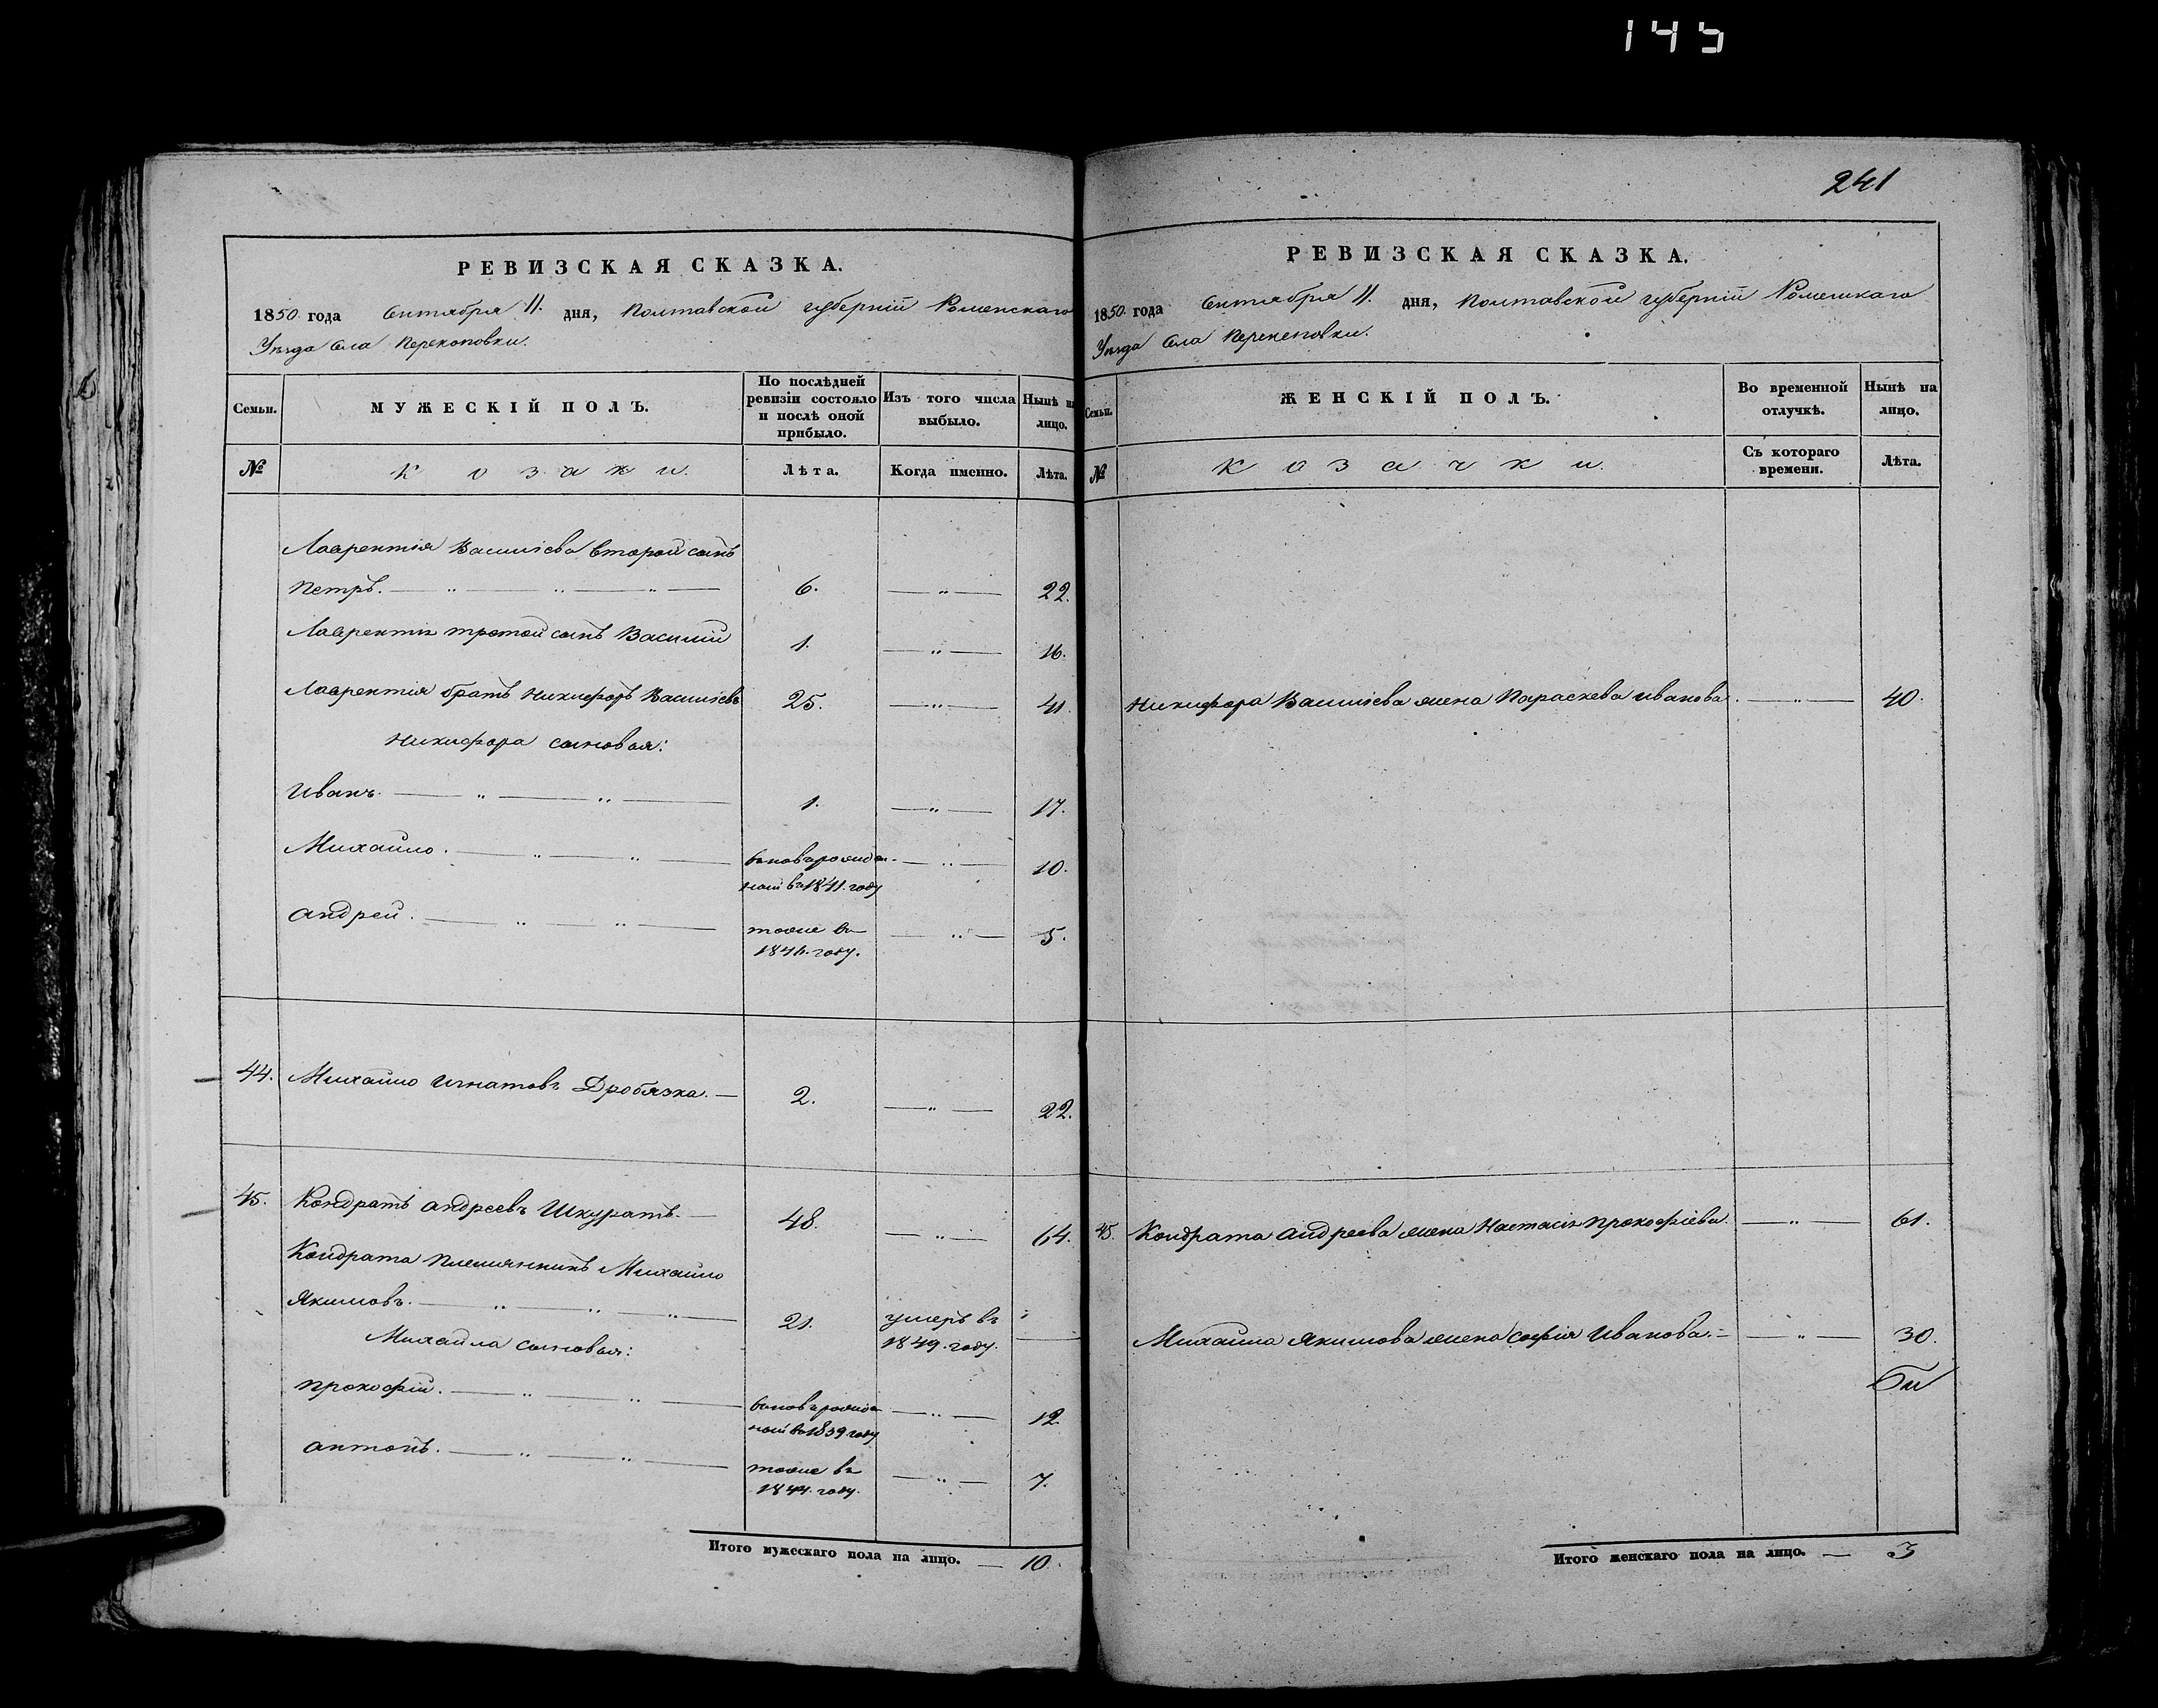 145
241
РЕВИЗСКАЯ СКАЗКА.
1850 года Сентября 11. дня, Полтавской губерніи Роменскаго
Уѣзда Села Перекоповки.
Семьи.
МУЖЕСКІЙ ПОЛЪ.
По послѣдней ревизіи состояло и послѣ оной прибыло.
Изъ того числа выбыло.
Нынѣ на лицо.
№
Козаки.
Лѣта.
Когда именно.
Лѣта.
Лаврентія Василіева второй сынъ
Петръ. 6. 22.
Лаврентія третой сынъ Василій 1. 16.
Лаврентія братъ Никифоръ Василіевъ 25. 41.
Никифора сыновья:
Иванъ. 1. 17.
Михайло. вновьрожден-
ный въ 1841. году 10.
Андрей. тоже въ
1846. году. 5.
44. Михайло Игнатовъ Дробязка. 2. 22.
45. Кондратъ Андреевъ Шкуратъ. 48. 64.
Кондрата племянникъ Михайло
Якимовъ. 21. умеръ въ
1849. году.
Михайла сыновья:
Прокофій. вновьрожден-
ный въ 1839 году 12.
Антонъ. тоже въ
1844. году. 7.
Итого мужескаго пола на лицо. 10.
РЕВИЗСКАЯ СКАЗКА.
1850. года Сентября 11. дня, Полтавской губерніи Роменскаго
Уѣзда Села Перекоповки.
Семьи.
ЖЕНСКІЙ ПОЛЪ.
Во временной отлучкѣ.
Нынѣ на лицо.
№
Козачки.
Съ котораго времени.
Лѣта.
Никифора Василіева жена Параскева Иванова. 40.
45. Кондрата Андреева жена Настасія Прокофіева. 61.
Михайла Якимова жена Софія Иванова. 30.
Итого женскаго пола на лицо. 3